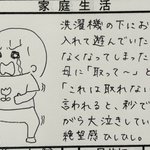 家庭生活
洗濯機の下にお
入れて遊んでいた
なくなってしまった
母に「取って〜」と
「これは取れない
言われると、秒で
がら大泣きしてい
絶望感ひしひし。